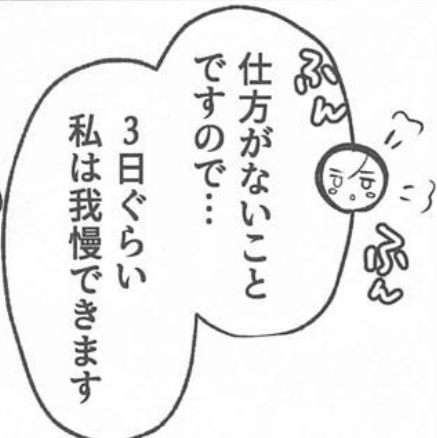 ふん
ふん
仕方がないこと
ですので…
3日ぐらい
私は我慢できます